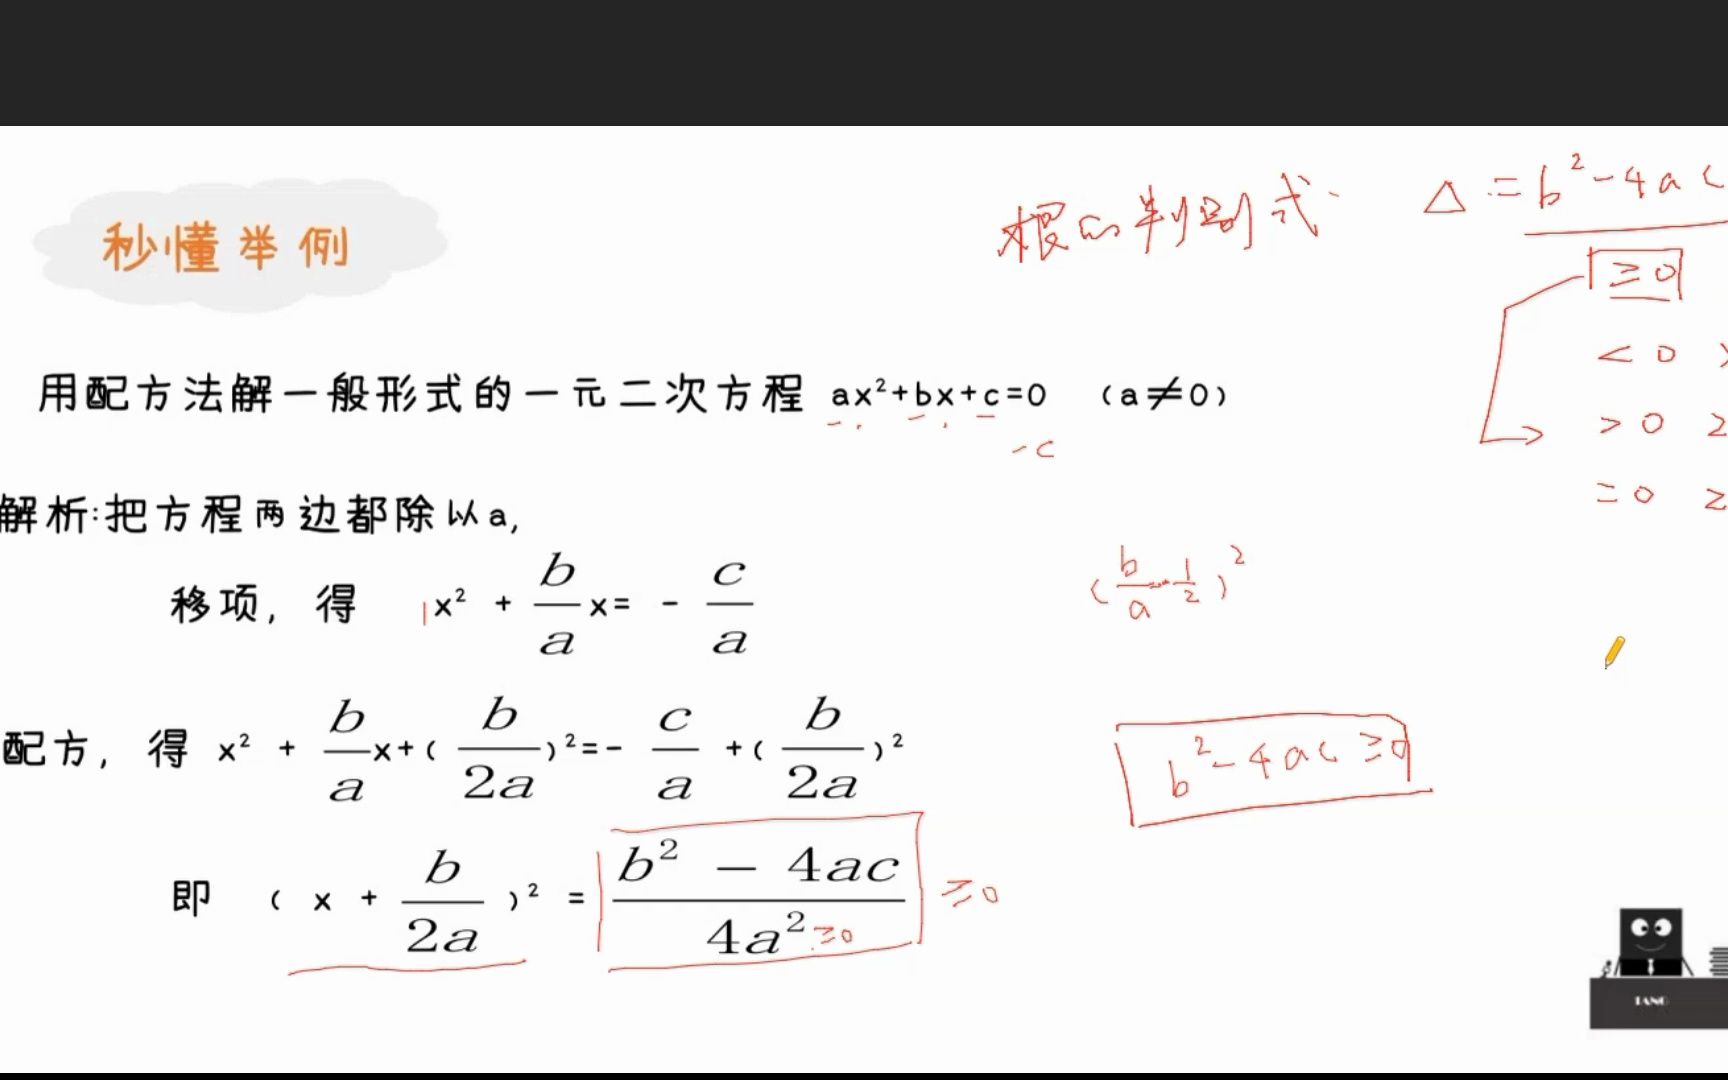 秒懂举例
根的判别式 △=b²-4ac
≥0
<0
>0 2
=0 2
用配方法解一般形式的一元二次方程 ax²+bx+c=0 (a≠0)
-c
解析:把方程两边都除以a,
移项，得 1x² + b/a x= - c/a
(b/a·1/2)²
配方，得 x² + b/a x+( b/2a )²=- c/a +( b/2a )²
b²-4ac≥0
即 ( x + b/2a )² = b² - 4ac / 4a² ≥0
≥0
TANG